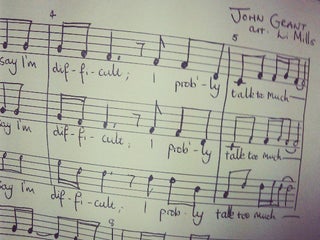 JOHN GRANT
arr. L. Mills
4
5
say I'm dif-fi-cult; I prob'-ly talk too much
say I'm dif-fi-cult; I prob'-ly talk too much
say I'm dif-fi-cult; I prob-ly talk too much
8